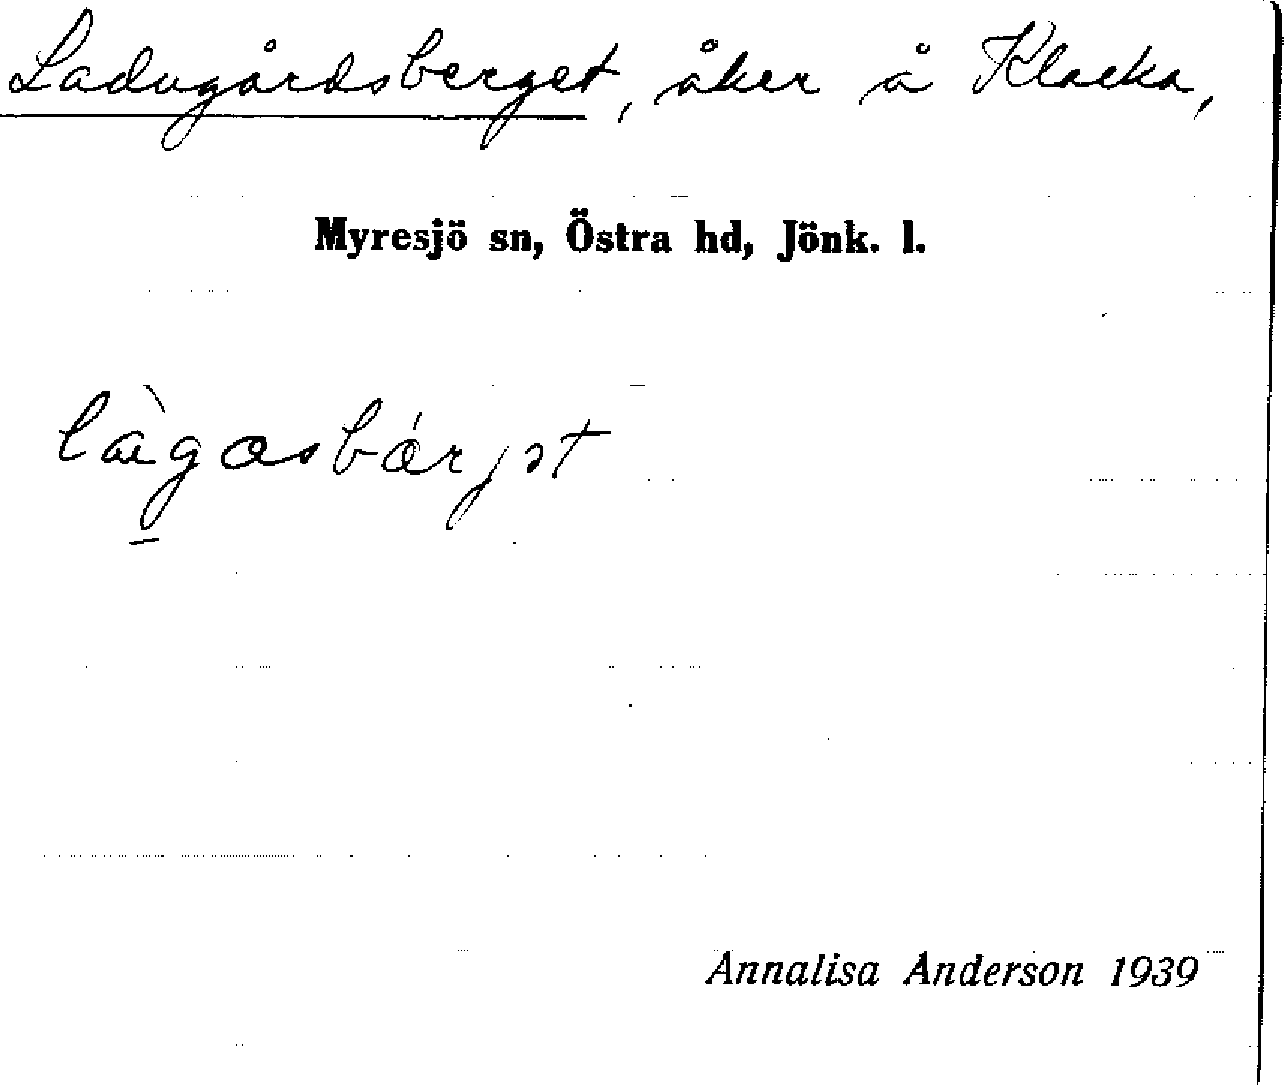 Ladugårdsberget, åker å Klacka,
Myresjö sn, Östra hd, Jönk. l.
Annalisa Anderson 1939